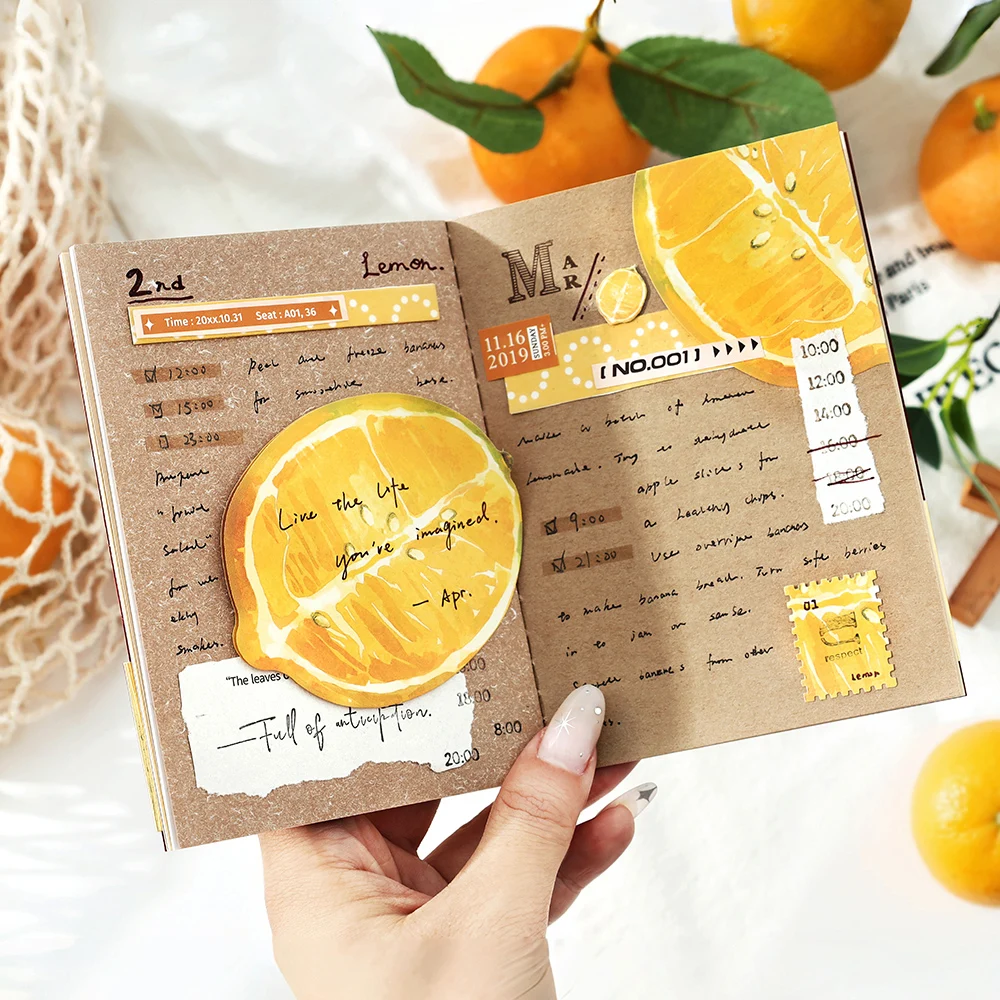 2nd
Lemon.
Time : 20xx.10.31 Seat : A01, 36
12:00 Peel and freeze bananas
15:00 for smoothie base.
23:00
Prepare
a fruit
salad"
for
smakes.
Live the life
you've imagined.
— Apr.
"The leaves
—Full of anticiption.
18:00
8:00
20:00
MAR
11.16
2019
SUNDAY
3:00 PM
[ NO.001 ]
10:00
12:00
14:00
16:00
18:00
20:00
make a batch of
Lemonade. Try
apple slices for
9:00 a healthy chips.
21:00 Use overripe bananas
to make banana bread. Turn soft berries
in to jam or
from other
01
respect
Lemon
and
Paris